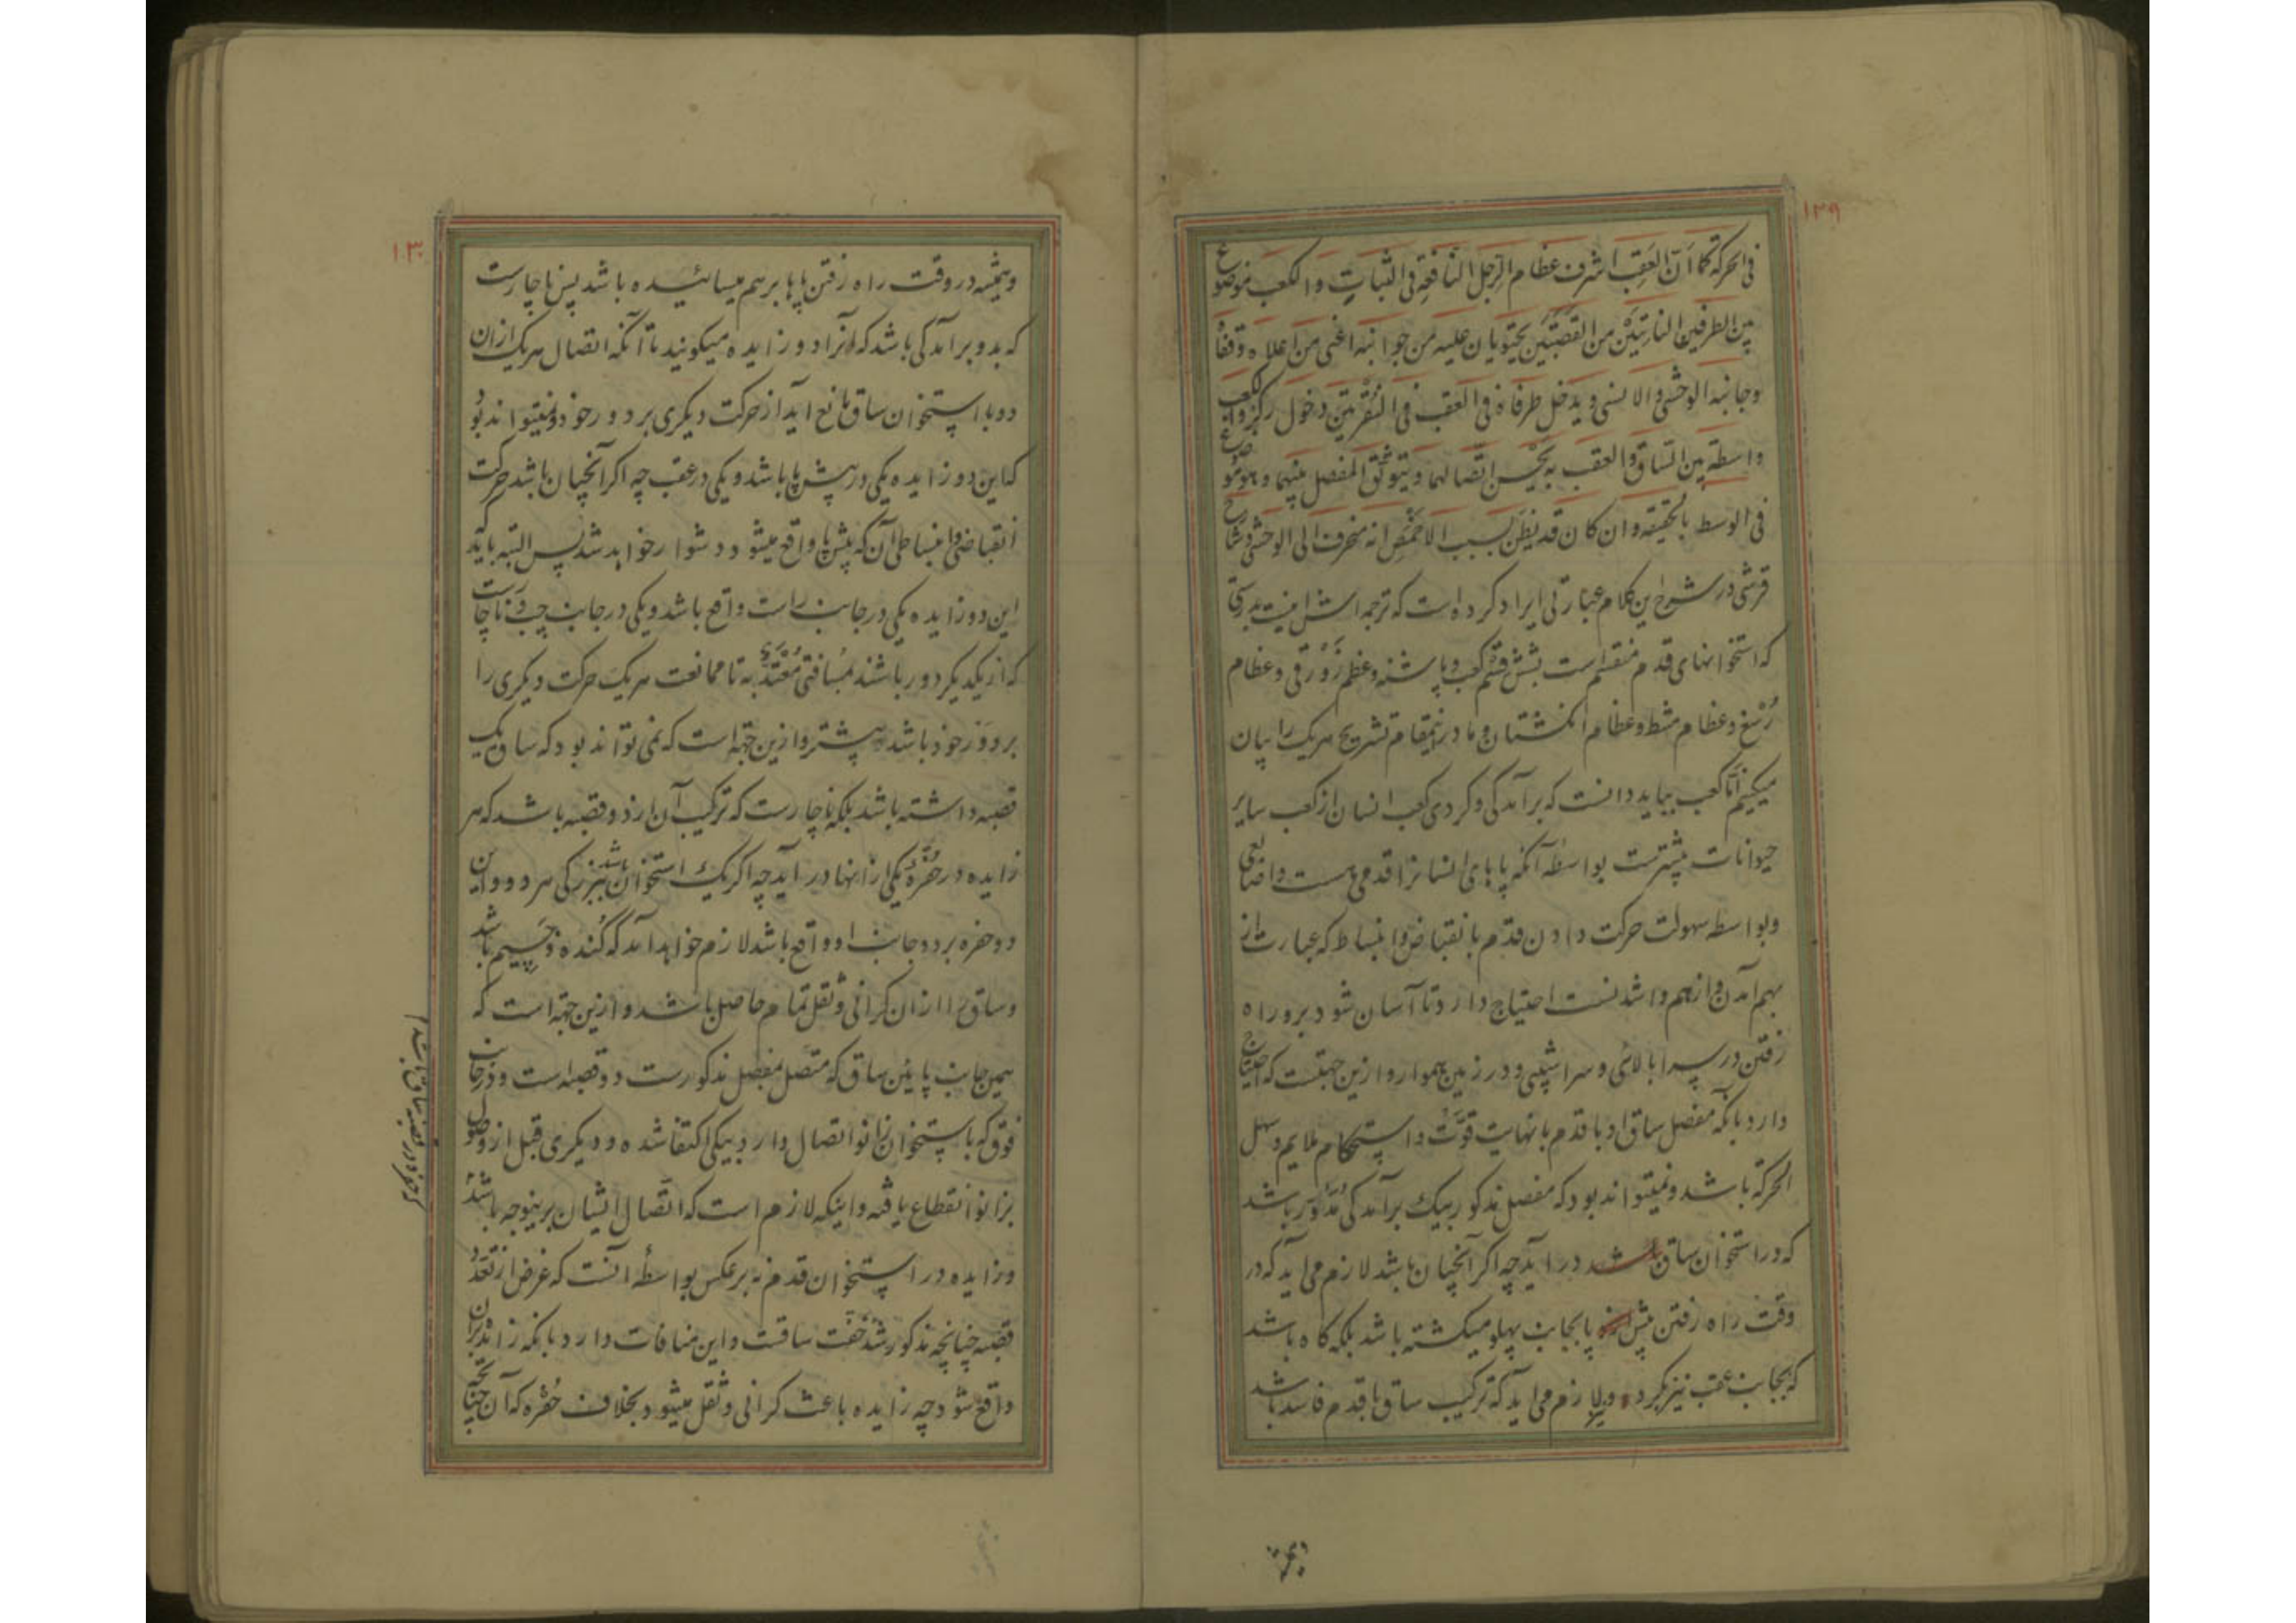 ۱۲۹
فی الحرکة کما ان العقب اشرف عظام الرجل النافعة فی الثبات والکعب موضوع
بین الطرفین الناتیین من القصبتین یحتویان علیه من جوانبه اعنی من اعلاه وقفاه
وجانبه الوحشی والانسی ویدخل طرفاه فی العقب فی النقرتین دخول رکز والکعب
واسطة بین الساق والعقب به یحسن اتصالهما ویتوثق المفصل بینهما وهو موضوع
فی الوسط بالحقیقه وان کان قد یظن بسبب الاخمص انه منحرف الی الوحشی وشارح
قرشی در شرح این کلام عبارتی ایراد کرده است که ترجمه اش اینست بدرستی
که استخوانهای قدم منقسم است بشش قسم کعب و پاشنه وعظم زورقی وعظام
رسغ وعظام مشط وعظام انکشتان وما درینمقام تشریح هریک را بیان
میکنیم اما کعب بباید دانست که برآمدکی وکردی کعب انسان از کعب سایر
حیوانات بیشترست بواسطه آنکه پاهای انسانرا قدمی هست واضاعی
وبواسطه سهولت حرکت دادن قدم بانقباض وانبساط که عبارت از
بهم آمدن واز هم واشدنست احتیاج دارد تا آسان شود برو راه
رفتن در سرابالائی وسراشیبی ودر زمین هموار وازین جهتست که احتیاج
دارد بآنکه مفصل ساق او با قدم بانهایت قوت واستحکام ملایم وسهل
الحرکة باشد ونمیتواند بود که مفصل مذکور بیک برآمدکی مدور باشد
که در استخوان ساق درآید چه اکر آنچنان باشد لازم می آید که در
وقت راه رفتن پیش پا بجانب پهلو میکشته باشد بلکه کاه باشد
که بجانب عقب نیز بکردد ولازم می آید که ترکیب ساق باقدم فاسد باشد
وهمیشه
۱۳۰
وهمیشه در وقت راه رفتن پاها برهم میسائیده باشد پس ناچارست
که بدو برآمدکی باشد که آنرا دو زایده میکویند تا آنکه اتصال هریک ازان
دو با استخوان ساق مانع آید از حرکت دیکری بر دور خود ونمیتواند بود
که این دو زایده یکی در پیش پا باشد ویکی در عقب چه اکر آنچنان باشد حرکت
انقباضی وانبساطی آن که پیش پا واقع میشود دشوار خواهد شد پس البته باید
این دو زایده یکی در جانب راست واقع باشد ویکی در جانب چپ وناچارست
که از یکدیکر دور باشند بمسافتی معتد به تا ممانعت هریک حرکت دیکری را
بر دور خود باشد بیشتر وازین جهة است که نمی تواند بود که ساق یک
قصبه داشته باشد بلکه ناچارست که ترکیب آن از دو قصبه باشد که هر
زایده در حفره یکی ازانها درآید چه اکر یک استخوان باشد ببزرکی هر دو واین
دو حفره بر دو جانب او واقع باشد لازم خواهد آمد که کنده وجسیم باشد
وساق را ازان کرانی وثقل تمام حاصل باشد وازین جهة است که
همین جانب پایین ساق که متصل بمفصل مذکورست دو قصبه است ودر جانب
فوق که با استخوان زانو اتصال دارد بیکی اکتفا شده ودیکری قبل از وصول
بزانو انقطاع یافته واینکه لازم است که اتصال ایشان برینوجه باشد
وزایده در استخوان قدم نه برعکس بواسطه آنست که غرض از تعدد
قصبه چنانچه مذکور شد خفت ساقست واین منافات دارد بآنکه زایده بران
واقع شود چه زایده باعث کرانی وثقل میشود بخلاف حفره که آن چنان
که حفره در قصبه ساق باشد